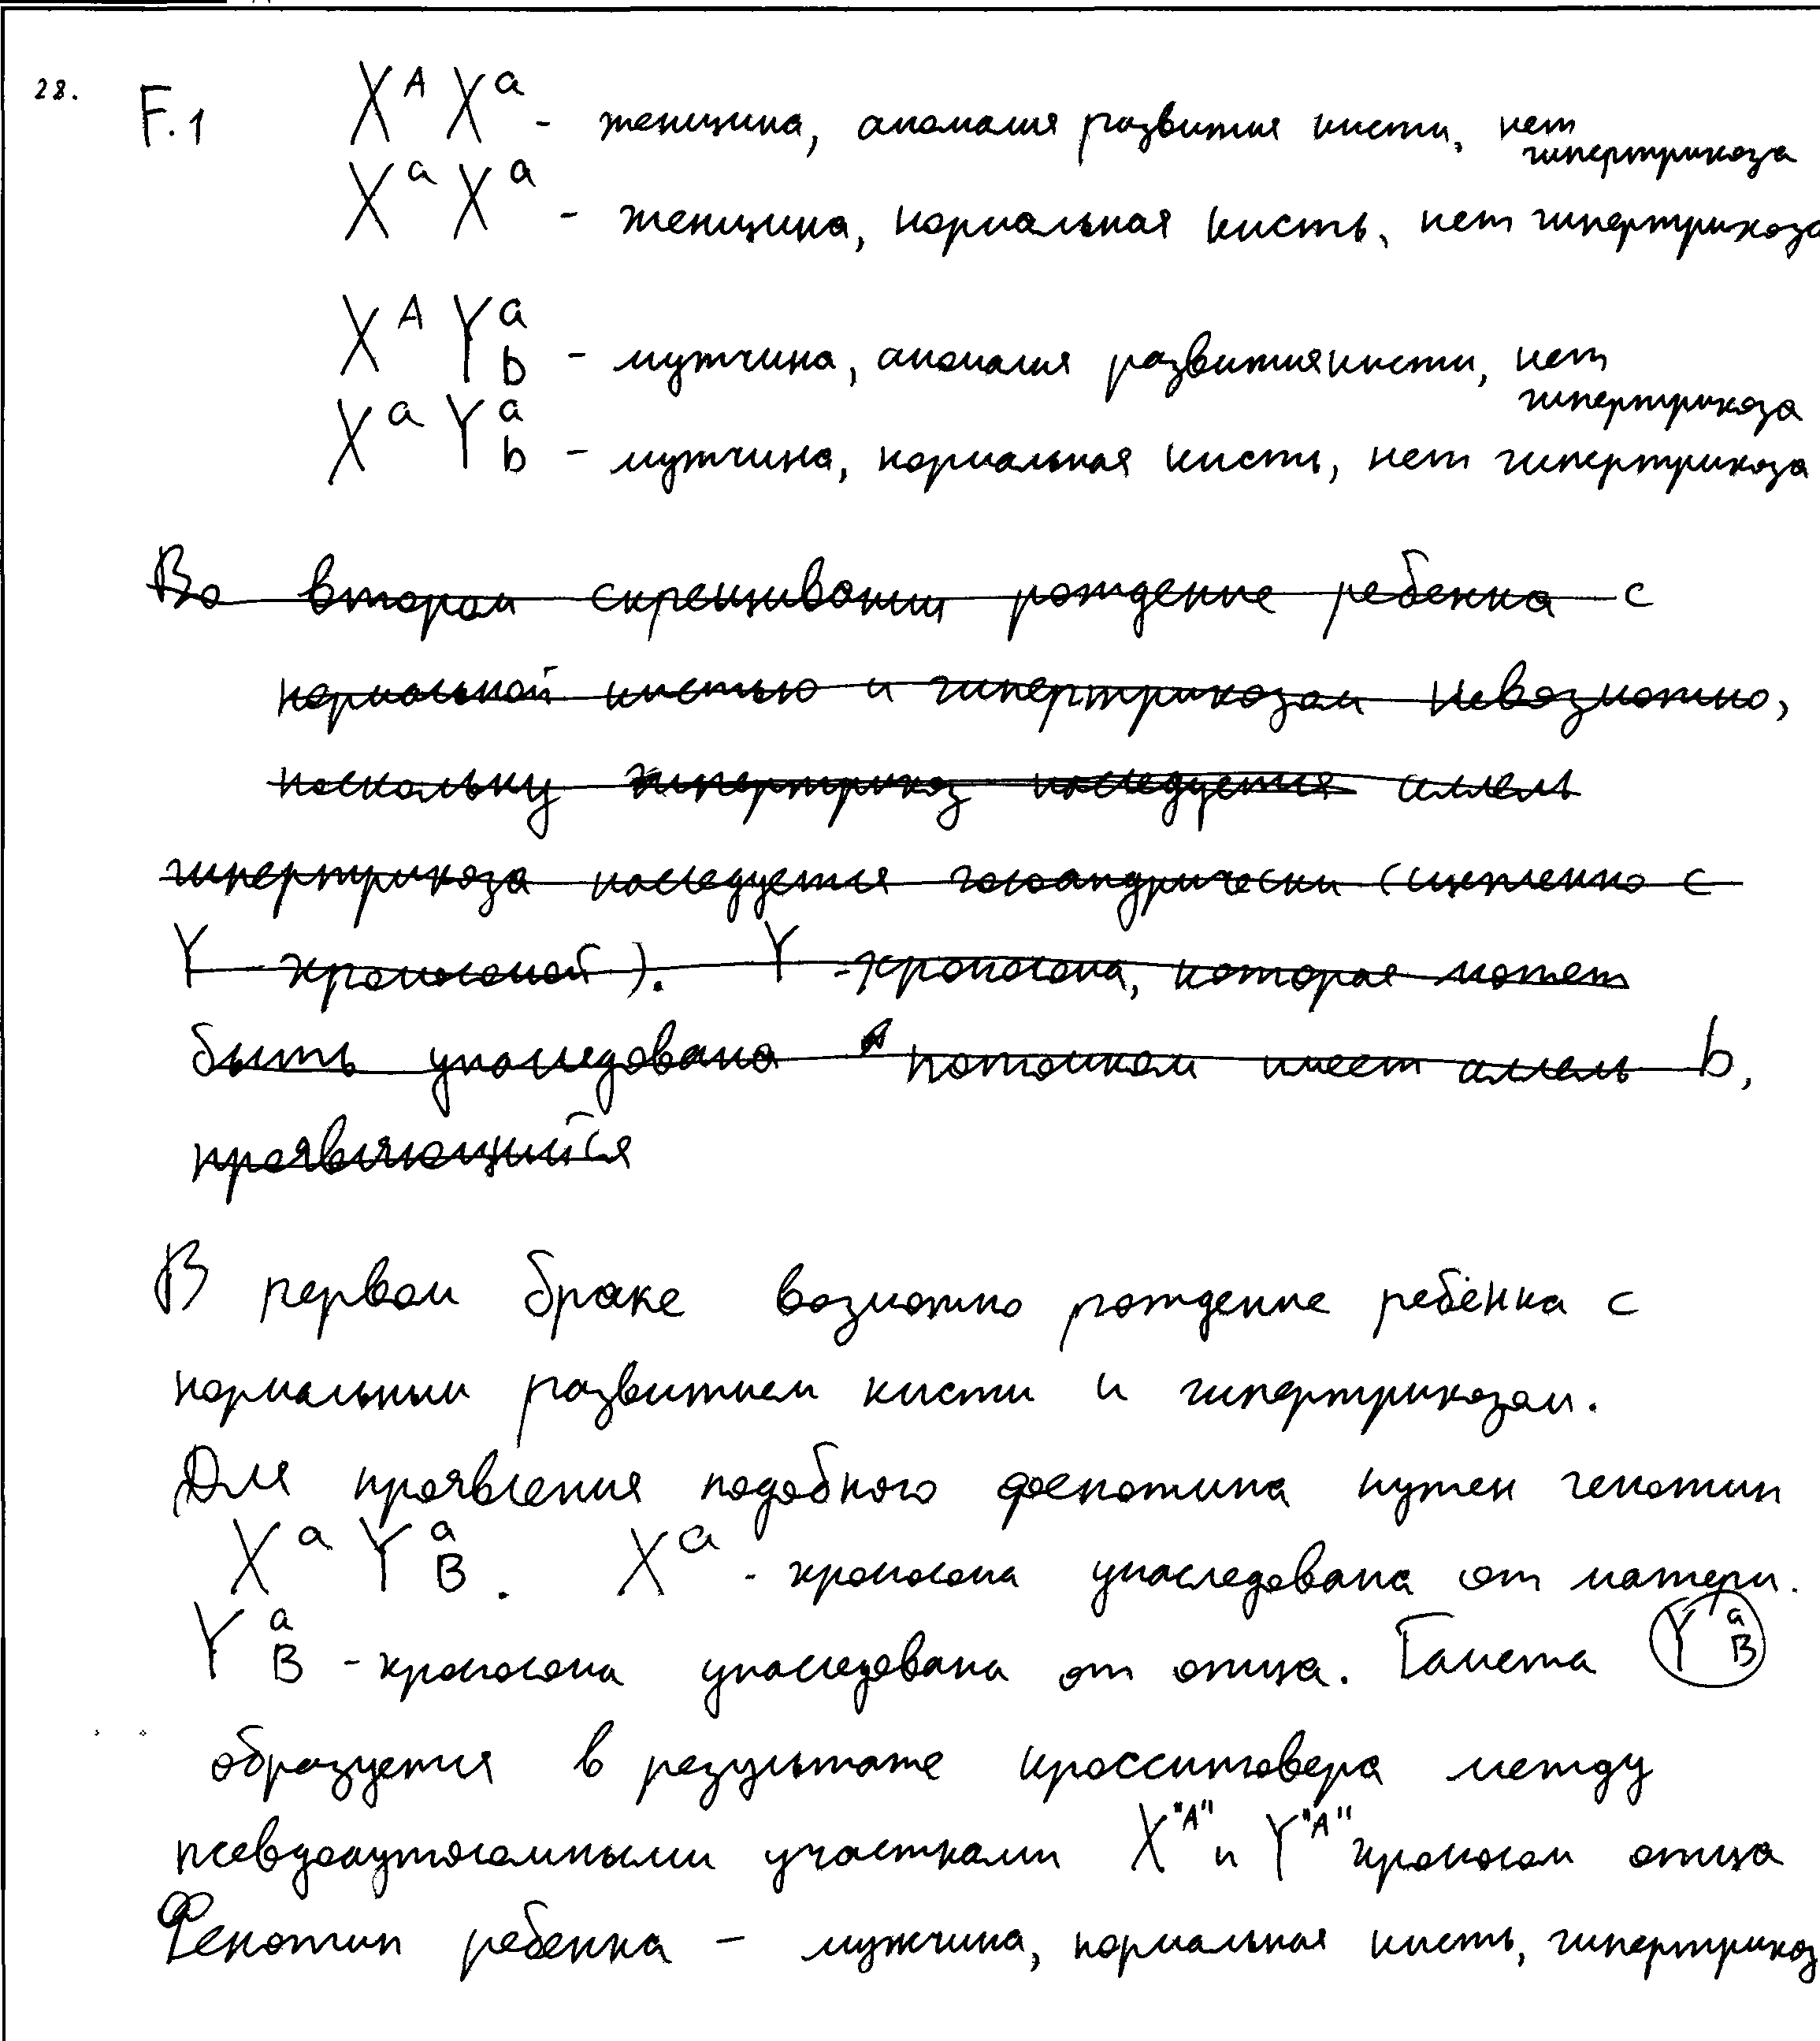 28.
F.1 X^A X^a - женщина, аномалия развития кисти, нет гипертрикоза
X^a X^a - женщина, нормальная кисть, нет гипертрикоза
X^A Y^a_b - мужчина, аномалия развития кисти, нет гипертрикоза
X^a Y^a_b - мужчина, нормальная кисть, нет гипертрикоза
Во втором скрещивании рождение ребенка с
нормальной кистью и гипертрикозом невозможно,
поскольку гипертрикоз наследуется аллель
гипертрикоза наследуется голоандрически (сцепленно с
Y - хромосомой). Y - хромосома, которая может
быть унаследована потомком имеет аллель b,
проявляющийся
В первом браке возможно рождение ребёнка с
нормальным развитием кисти и гипертрикозом.
Для проявления подобного фенотипа нужен генотип
X^a Y^a_B. X^a - хромосома унаследована от матери.
Y^a_B - хромосома унаследована от отца. Гамета Y^a_B
образуется в результате кроссинговера между
псевдоаутосомными участками X^"A" и Y^"A" хромосом отца
Фенотип ребенка - мужчина, нормальная кисть, гипертрикоз